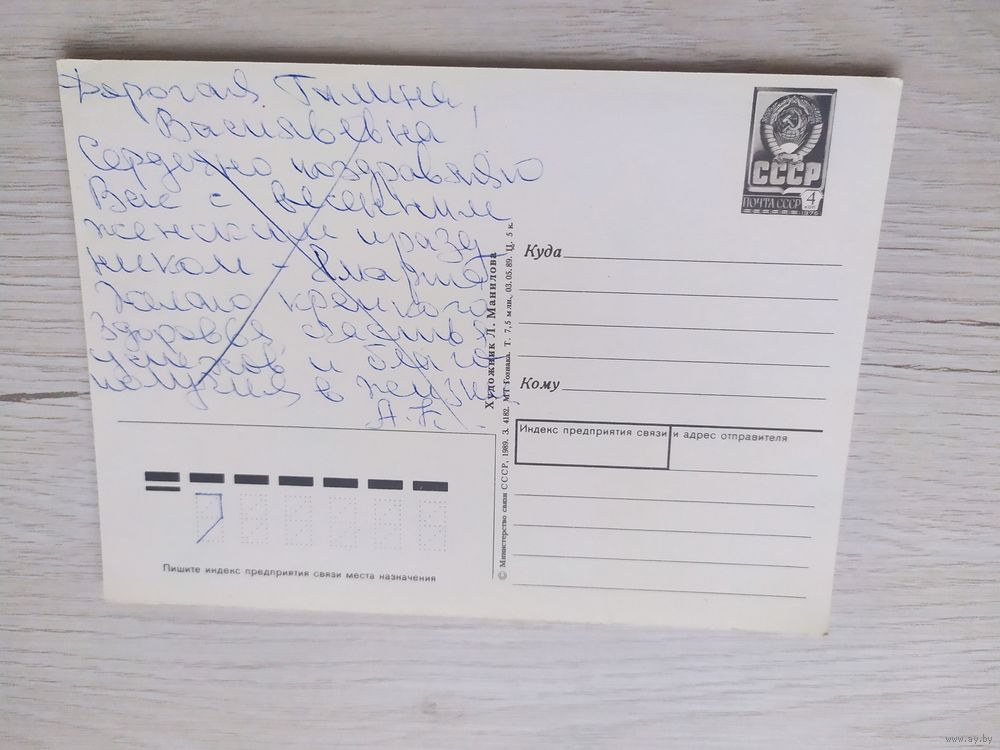 Дорогая Галина
Васильевна!
Сердечно поздравляю
Вас с весенним
женским празд
ником - 8 марта
Желаю крепкого
здоровья счастья
успехов и благо
получия в жизни
А. Н.
СССР
ПОЧТА СССР 4
КОП
1976
Куда
Кому
Индекс предприятия связи и адрес отправителя
Художник Л. Манилова
© Министерство связи СССР, 1989. З. 4182. МТ Гознака. Т. 7,5 млн., 03.05.89. Ц. 5 к.
Пишите индекс предприятия связи места назначения
www.ay.by